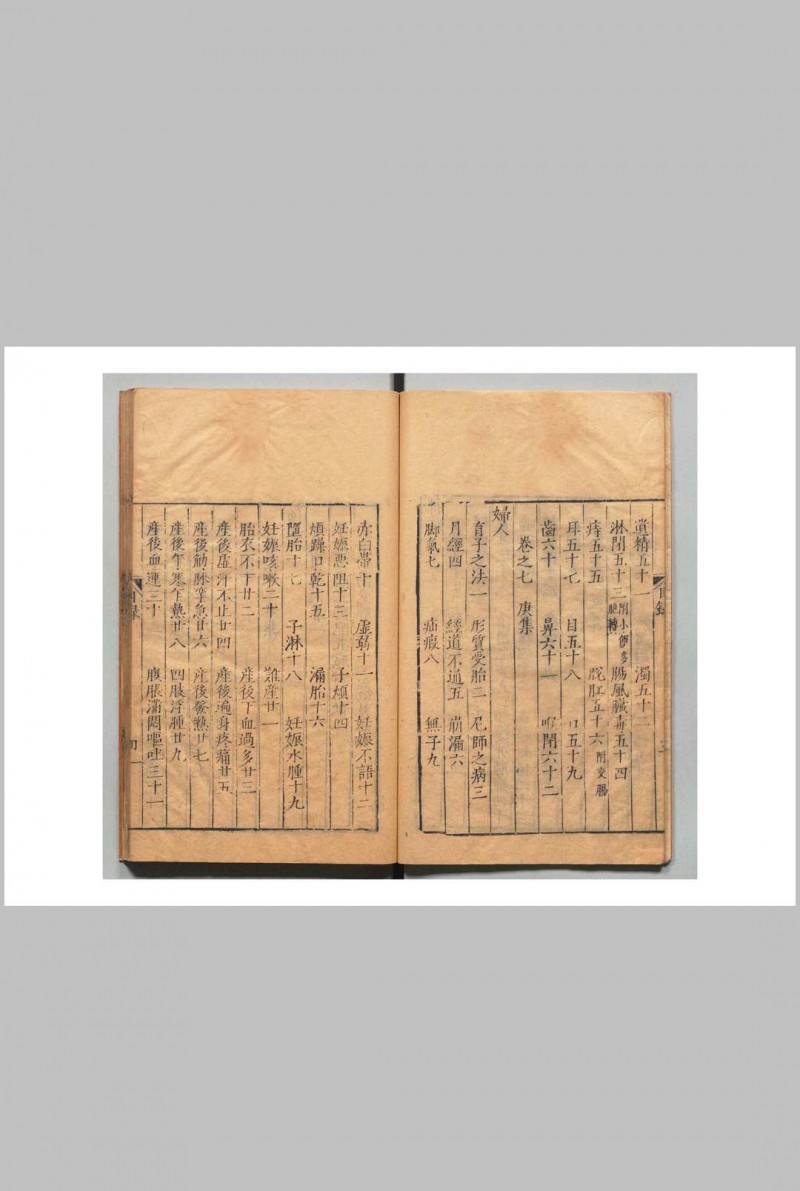 遺精五十一 濁五十二
淋閉五十三 附小便多 胞轉 腸風臟毒五十四
痔五十五 脫肛五十六 附交腸
耳五十七 目五十八 口五十九
齒六十 鼻六十一 喉閉六十二
卷之七 庚集
婦人
育子之法一 形質受胎二 尼師之病三
月經四 經道不通五 崩漏六
脚氣七 疝瘕八 無子九
目錄
赤白帶十 虛弱十一 妊娠不語十二
妊娠惡阻十三 子煩十四
煩躁口乾十五 漏胎十六
墮胎十七 子淋十八 妊娠水腫十九
妊娠咳嗽二十 難產廿一
胎衣不下廿二 產後下血過多廿三
產後虛汗不止廿四 產後遍身疼痛廿五
產後觔脉攣急廿六 產後發熱廿七
產後乍寒乍熱廿八 四肢浮腫廿九
產後血運三十 腹脹滿悶嘔吐三十一
目錄